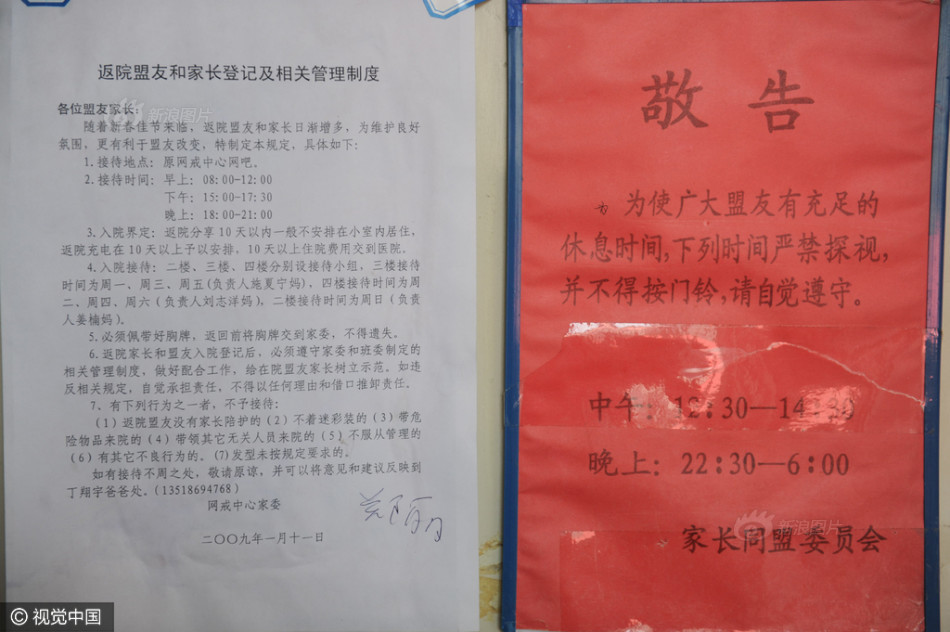 返院盟友和家长登记及相关管理制度
各位盟友家长：
随着新春佳节来临，返院盟友和家长日渐增多，为维护良好
氛围，更有利于盟友改变，特制定本规定，具体如下：
1.接待地点：原网戒中心网吧。
2.接待时间：早上：08:00-12:00
下午：15:00-17:30
晚上：18:00-21:00
3.入院界定：返院分享10天以内一般不安排在小室内居住，
返院充电在10天以上予以安排，10天以上住院费用交到医院。
4.入院接待：二楼、三楼、四楼分别设接待小组，三楼接待
时间为周一、周三、周五(负责人施夏宁妈)，四楼接待时间为周
二、周四、周六（负责人刘志洋妈），二楼接待时间为周日（负责
人姜楠妈）。
5.必须佩带好胸牌，返回前将胸牌交到家委，不得遗失。
6.返院家长和盟友入院登记后，必须遵守家委和班委制定的
相关管理制度，做好配合工作，给在院盟友家长树立示范。如违
反相关规定，自觉承担责任，不得以任何理由和借口推卸责任。
7、有下列行为之一者，不予接待：
（1）返院盟友没有家长陪护的（2）不着迷彩装的（3）带危
险物品来院的（4）带领其它无关人员来院的（5）不服从管理的
（6）有其它不良行为的。（7)发型未按规定要求的。
如有接待不周之处，敬请原谅，并可以将意见和建议反映到
丁翔宇爸爸处。（13518694768）
网戒中心家委
二〇〇九年一月十一日
敬告
为使广大盟友有充足的
休息时间,下列时间严禁探视,
并不得按门铃,请自觉遵守。
中午：12:30—14:30
晚上：22:30—6:00
家长同盟委员会
新浪图片
新浪图片
© 视觉中国